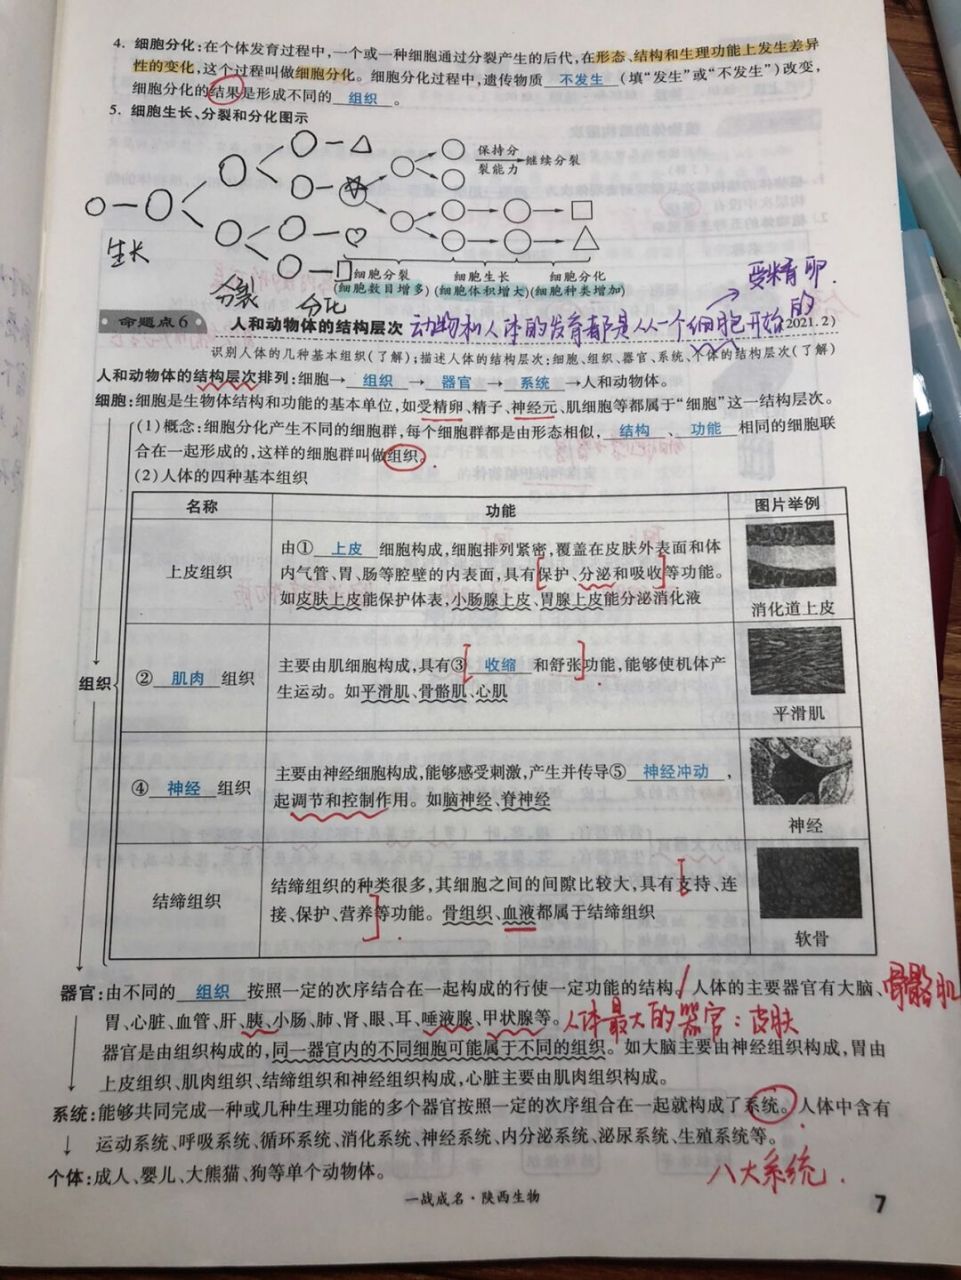 4. 细胞分化:在个体发育过程中,一个或一种细胞通过分裂产生的后代,在形态、结构和生理功能上发生差异
性的变化,这个过程叫做细胞分化。细胞分化过程中,遗传物质 不发生 (填“发生”或“不发生”)改变,
细胞分化的结果是形成不同的 组织 。
5. 细胞生长、分裂和分化图示
保持分
裂能力
继续分裂
生长
分裂
分化
细胞分裂 细胞生长 细胞分化
(细胞数目增多)(细胞体积增大)(细胞种类增加)
受精卵
命题点6 人和动物体的结构层次 动物和人体的发育都是从一个细胞开始的 2021.2)
识别人体的几种基本组织(了解);描述人体的结构层次:细胞、组织、器官、系统、个体的结构层次(了解)
人和动物体的结构层次排列:细胞→ 组织 → 器官 → 系统 →人和动物体。
细胞:细胞是生物体结构和功能的基本单位,如受精卵、精子、神经元、肌细胞等都属于“细胞”这一结构层次。
(1)概念:细胞分化产生不同的细胞群,每个细胞群都是由形态相似, 结构 、 功能 相同的细胞联
合在一起形成的,这样的细胞群叫做组织。
(2)人体的四种基本组织
名称 功能 图片举例
上皮组织
由① 上皮 细胞构成,细胞排列紧密,覆盖在皮肤外表面和体
内气管、胃、肠等腔壁的内表面,具有保护、分泌和吸收等功能。
如皮肤上皮能保护体表,小肠腺上皮、胃腺上皮能分泌消化液
消化道上皮
组织
② 肌肉 组织
主要由肌细胞构成,具有③ 收缩 和舒张功能,能够使机体产
生运动。如平滑肌、骨骼肌、心肌
平滑肌
④ 神经 组织
主要由神经细胞构成,能够感受刺激,产生并传导⑤ 神经冲动 ,
起调节和控制作用。如脑神经、脊神经
神经
结缔组织
结缔组织的种类很多,其细胞之间的间隙比较大,具有支持、连
接、保护、营养等功能。骨组织、血液都属于结缔组织
软骨
器官:由不同的 组织 按照一定的次序结合在一起构成的行使一定功能的结构,人体的主要器官有大脑、骨骼肌
胃、心脏、血管、肝、胰、小肠、肺、肾、眼、耳、唾液腺、甲状腺等。人体最大的器官:皮肤
器官是由组织构成的,同一器官内的不同细胞可能属于不同的组织。如大脑主要由神经组织构成,胃由
上皮组织、肌肉组织、结缔组织和神经组织构成,心脏主要由肌肉组织构成。
系统:能够共同完成一种或几种生理功能的多个器官按照一定的次序组合在一起就构成了系统。人体中含有
运动系统、呼吸系统、循环系统、消化系统、神经系统、内分泌系统、泌尿系统、生殖系统等。
八大系统.
个体:成人、婴儿、大熊猫、狗等单个动物体。
一战成名·陕西生物
7